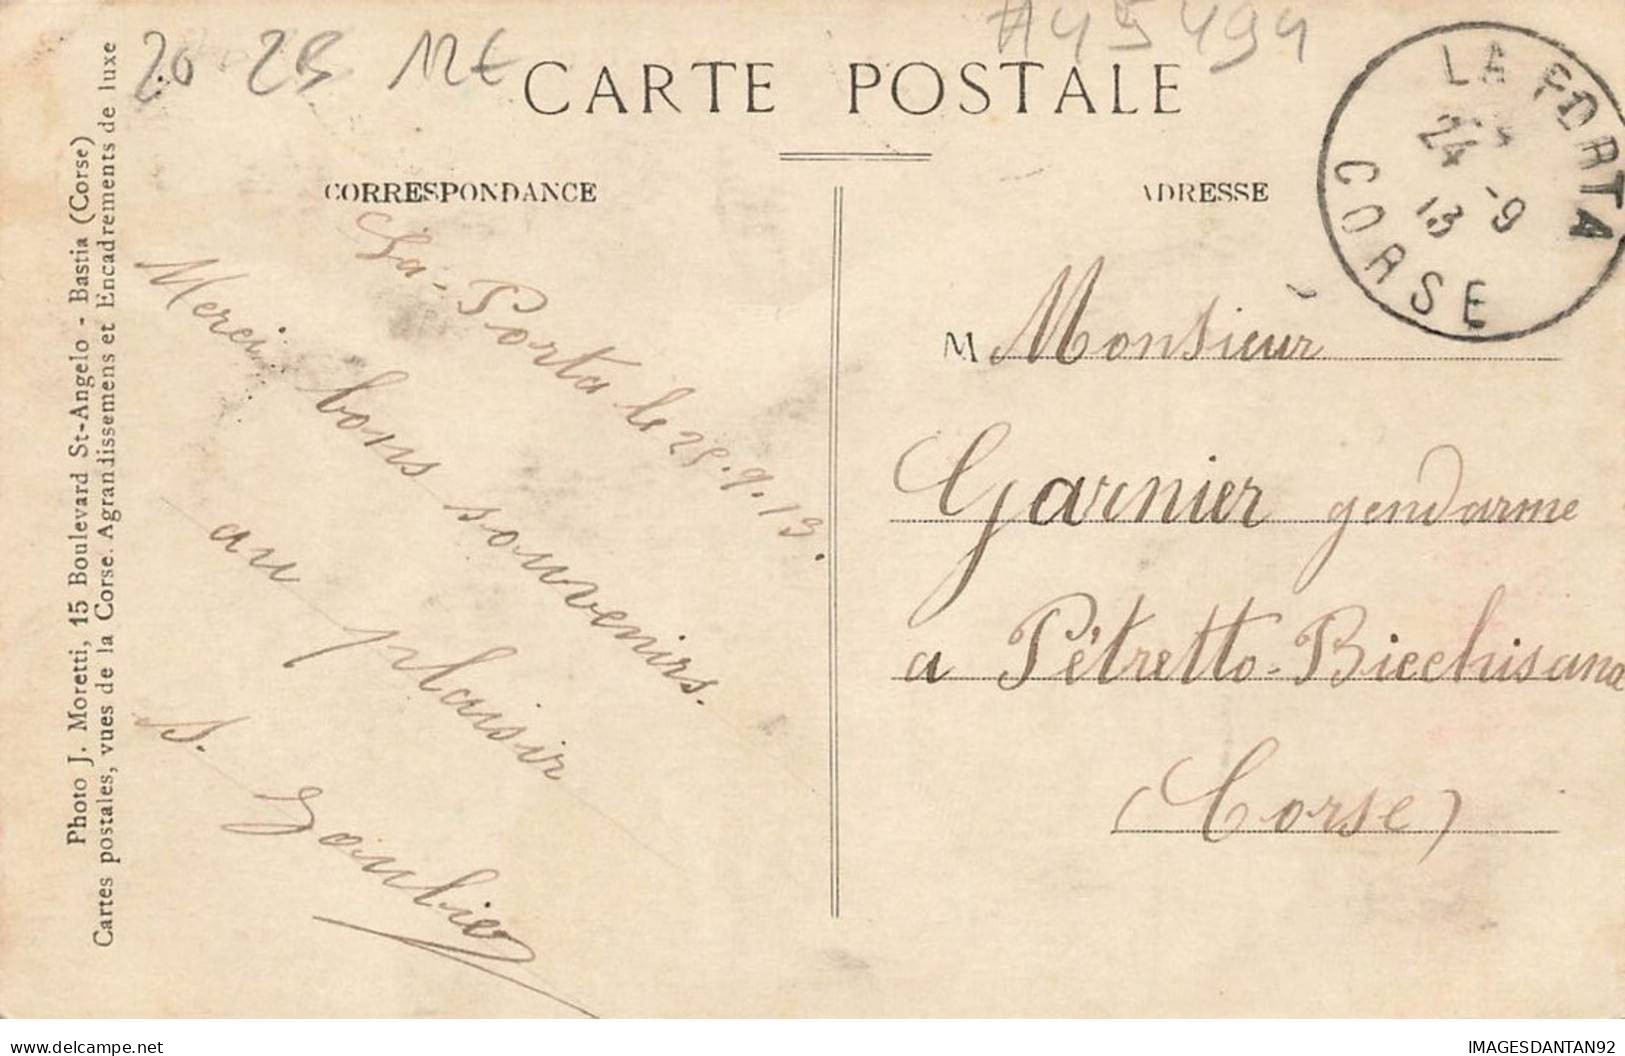 20 25 12€
#45494
CARTE POSTALE
CORRESPONDANCE
ADRESSE
LA PORTA
24 -9
13
CORSE
La-Porta le 25.9.13.
Merci bons souvenirs.
au plaisir
S.
M Monsieur
Garnier gendarme
a Pétretto-Bicchisana
(Corse)
Photo J. Moretti, 15 Boulevard St-Angelo - Bastia (Corse)
Cartes postales, vues de la Corse. Agrandissemens et Encadrements de luxe
delcampe.net
IMAGESDANTAN92